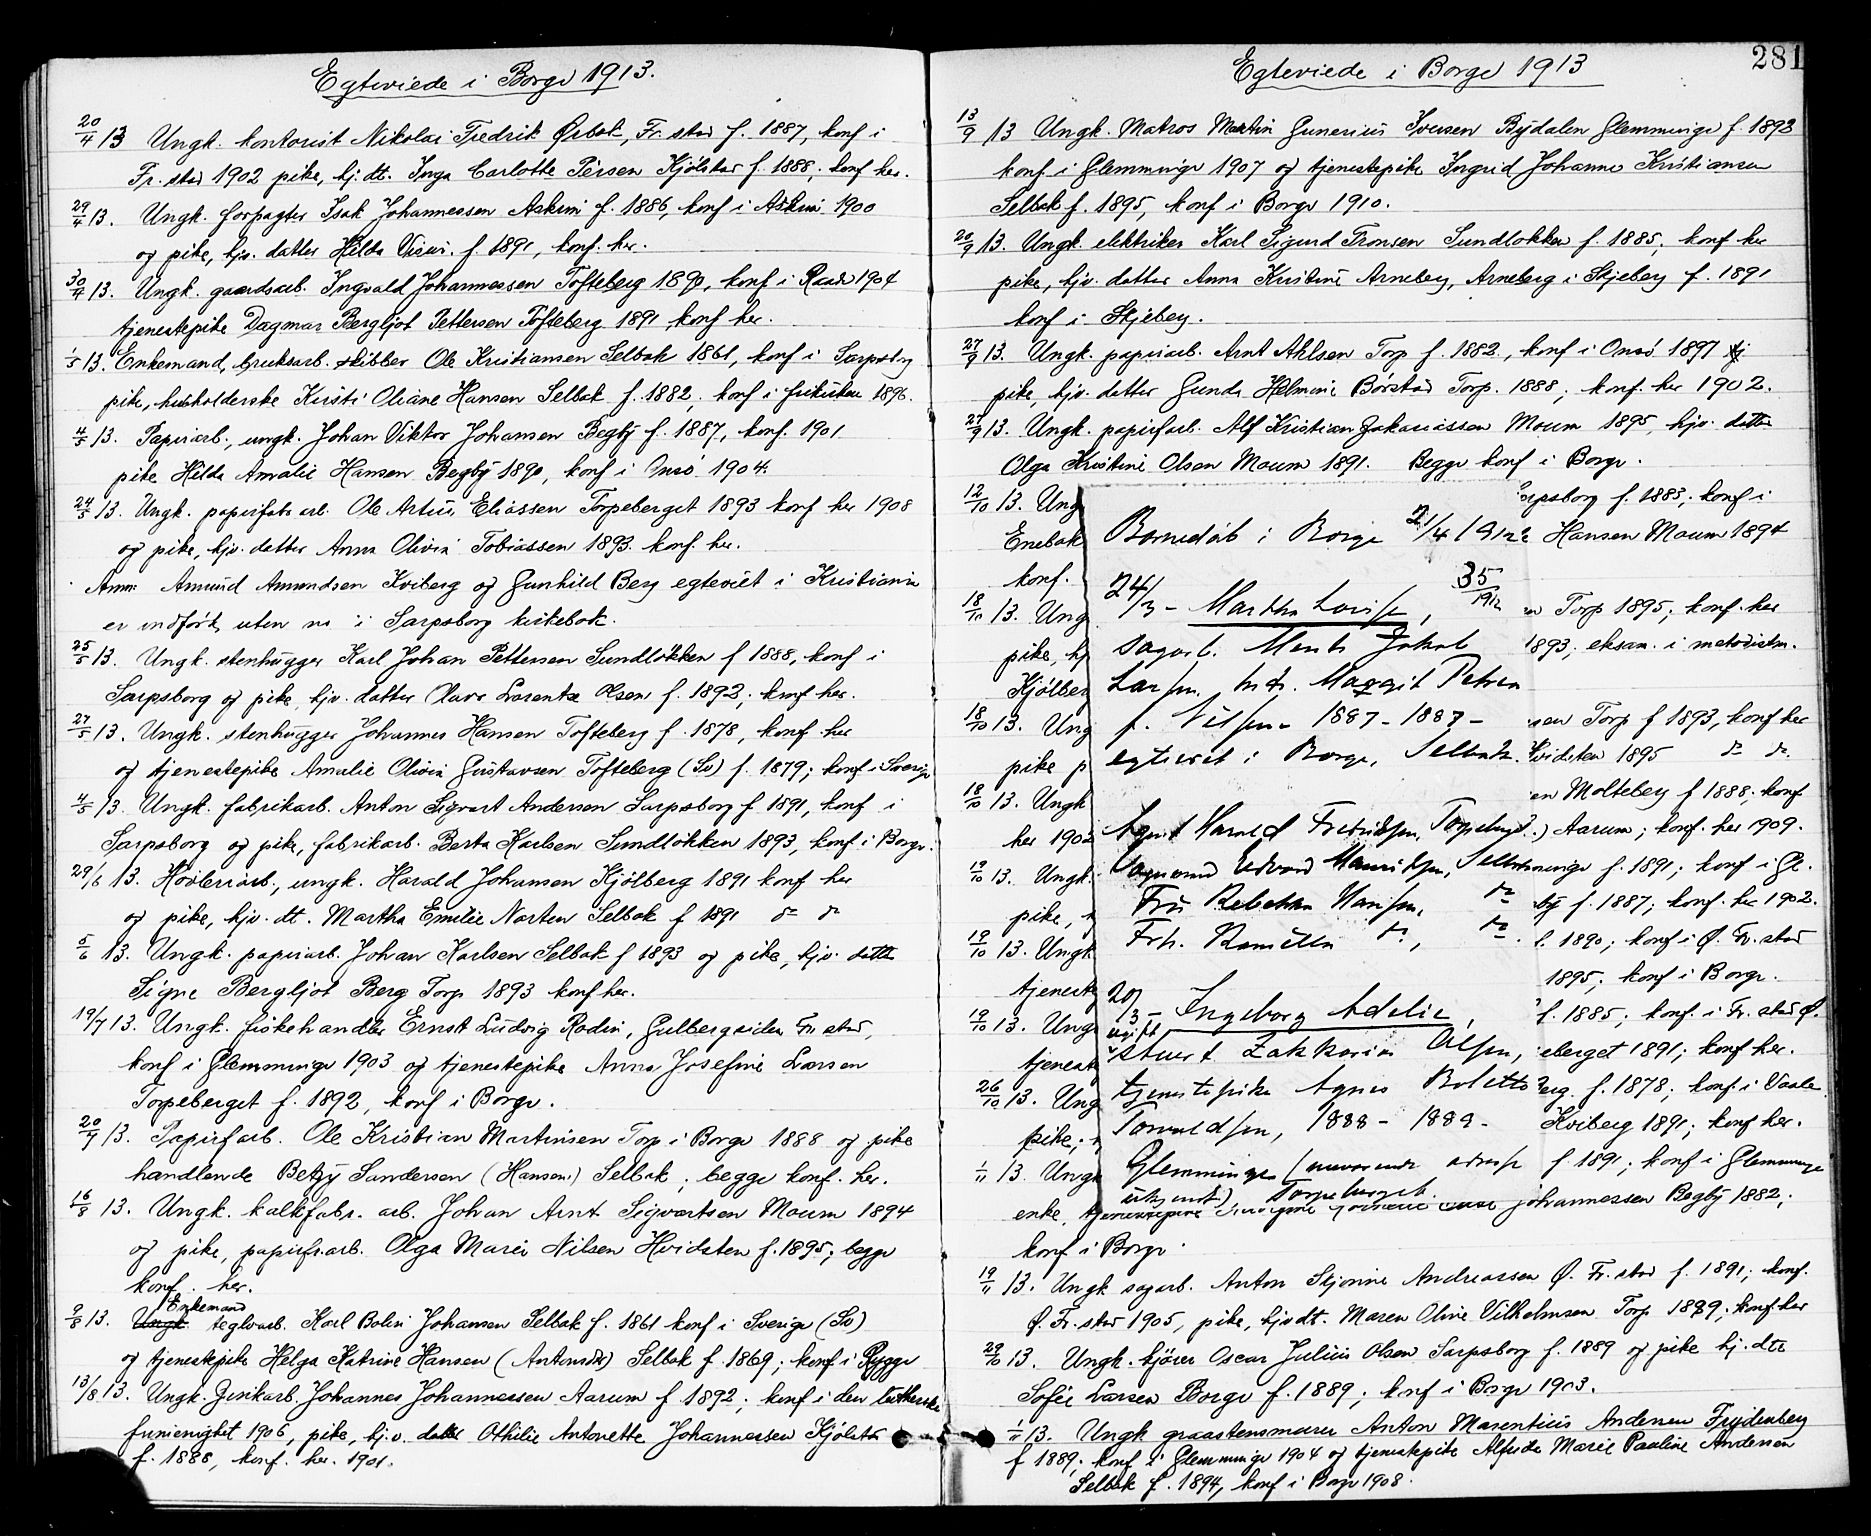 Egteviede i Borge 1913.
20/4 13 Ungk. kontorist Nikolai Fredrik Ørbek, Fr.stad f. 1887, konf i
Fr.stad 1902 pike, hj. dt. Inga Carlotte Persen Kjølstad f. 1888, konf her.
29/4 13. Ungk. forpagter Isak Johannessen Askim f. 1886, konf i Askim 1900
og pike, hjv. datter Hilda f. 1891, konf. her.
30/4 13. Ungk. gaardsarb. Ingvald Johannessen Tofteberg 1890, konf i Raade 1904
tjenestepike Dagmar Bergljot Pettersen Tofteberg 1891 konf her.
1/5 13. Enkemand, bruksarb. skibber Ole Kristiansen Selbak 1861, konf i Sarpsborg
pike, husholderske Kirsti Oliane Hansen Selbak f. 1882, konf i frikirken 1896.
4/5 13. Papirarb., ungk. Johan Viktor Johansen Begby f. 1887, konf. 1901
pike Hilda Amalie Hansen Begby 1890, konf i Onsø 1904.
24/5 13. Ungk. papirfabr arb. Ole Artur Eliassen Torpeberget 1893 konf her 1908
og pike, hjv. datter Anna Olivia Tobiassen 1893. konf. her.
Anm: Amund Amundsen Kviberg og Gunhild Berg egteviet i Kristiania
er indført, uten nr i Sarpsborg kirkebok.
25/5 13. Ungk. stenhugger Karl Johan Pettersen Sundløkken f 1888, konf i
Sarpsborg og pike, hjv. datter Olava Lorentze Olsen f. 1892; konf her.
27/5 13. Ungk. stenhugger Johannes Hansen Tofteberg f. 1878, konf her
og tjenestepike Amalie Olivia Gustavsen Tofteberg (Sv) f. 1879; konf i Sverige
4/5 13. Ungk. fabrikarb. Anton Sigvart Andersen Sarpsborg f 1891, konf i
Sarpsborg og pike, fabrikarb. Berta Karlsen Sundløkken 1893, konf i Borge.
29/6 13. Høvleriarb., ungk. Harald Johansen Kjølberg 1891 konf her
og pike, hjv. dt. Martha Emilie Norten Selbak f 1891 do do
5/6 13. Ungk. papirarb. Johan Karlsen Selbak f 1893 og pike, hjv. datter
Signe Bergljot Berg Torp 1893 konf her.
19/7 13. Ungk. fiskehandler Ernst Ludvig Rodin, Gulbergsiden Fr.stad,
konf i Glemminge 1903 og tjenestepike Anna Josefine Larsen
Torpeberget f. 1892, konf i Borge.
20/7 13. Papirfarb. Ole Kristian Martinsen Torp i Borge 1888 og pike
handlende Betzy Sandersen (Hansen) Selbak; begge konf. her.
16/8 13. Ungk. kalkfabr. arb. Johan Arnt Sigvartsen Moum 1894
og pike, papirf.arb. Olga Marie Nilsen Hvidsten f. 1895; begge
konf. her.
Enkemand
9/8 13. Ungk. teglvarb. Karl Bolin Johansen Selbak f. 1861 konf i Sverige (Sv)
og tjenestepike Helga Katrine Hansen (Antonsdtr) Selbak f 1869; konf i Rygge
13/8 13. Ungk. Johannes Johannessen Aarum f 1892; konf i den lutherske
frimenighet 1906, pike, hj.v. datter Othilie Antonette Johannessen Kjølstad
f. 1888, konf. her. 1901.
281
Egteviede i Borge 1913
13/9 13 Ungk. Matros Martin Gunerius Iversen Bydalen Glemminge f 1893
konf. i Glemminge 1907 og tjenestepike Ingrid Johanne Kristiansen
Selbak f. 1895, konf i Borge 1910.
20/9 13. Ungk. elektriker Karl Sigurd Fronsen Sundløkken f. 1885; konf her
pike, hjv. datter Anna Kristine Arneberg, Arneberg i Skjeberg f. 1891
konf i Skjeberg.
27/9 13. Ungk. papirarb. Arnt Ahlsen Torp f. 1882, konf i Onsø 1897
pike, hjv. datter Gunda Helmine Børstad Torp. 1888; konf. her 1902.
27/9 13. Ungk. papirfarb. Alf Kristian Zakariassen Moum 1895, hjv. datter
Olga Kristine Olsen Moum 1891. Begge konf i Borge.
12/10 13. Ung
arpsborg f. 1883; konf i
Enebak
Hansen Moum 1894
konf.
18/10 13. Ung
Torp 1895; konf. her
pike, hj
1893; eksam. i metodistm.
Kjølber
18/10 13. Ung
sen Torp f 1893, konf her
pike p
Hvidsten 1895 do do.
18/10 13. Ungk
en Molteberg f 1888; konf
her 1902
Aarum; konf. her 1909.
19/10 13. Ungk.
minge f. 1891; konf i Gl.
pike,
by f. 1887; konf. her 1902.
19/10 13. Ungk
f. 1890; konf i Ø. Fr.stad
tjenestep
1895; konf i Borge.
19/10 13. Ung
f. 1885; konf. i Fr.stad Ø.
tjenest
eberget 1891; konf her.
26/10 13. Ung
berg. f. 1878; konf. i Vaale
pike;
Kviberg 1891; konf her.
1/11 13. Ungk
f 1891; konf i Glemminge
enke, tjenestepike Johannessen Begby 1882;
konf i Borge.
Barnedåb i Borge 21/4 1912
24/3 - Martha Lovise, 35/1912
sagarb. Jakob
Larsen, hstr. Maggit Petren
f. Nilsen 1887 - 1887 -
egteviet i Borge, Selbak.
Agnes Harald Fredriksen, Torpeberget
Edvard Henriksen, Selbak
Fru Rebekka Hansen, do
Frk. Kamilla do, do.
20/3 - Ingeborg Adelie,
ugift
stuert Zakkarias Olsen,
tjenestepike Agnes Bolette
Torvaldsen, 1888 - 1889 -
Glemminge (nuværende adresse
ukjendt), Torpeberget.
19/11 13. Ungk sagarb. Anton Skjonne Andreassen Ø. Fr.stad f. 1891; konf.
Ø. Fr.stad 1905, pike, hjvdt. Maren Oline Vilhelmsen Torp 1889; konf her
29/10 13. Ungk. kjører Oscar Julius Olsen Sarpsborg f. 1889 og pike hj. dtr
Sofie Larsen Borge f. 1889; konf i Borge 1903.
1/11 13. Ungk graastensmurer Anton Marentius Andersen Frydenberg
f 1889; konf i Glemminge 1904 og tjenestepike Alfrida Marie Pauline Andersen
Selbak f. 1894, konf i Borge 1908.